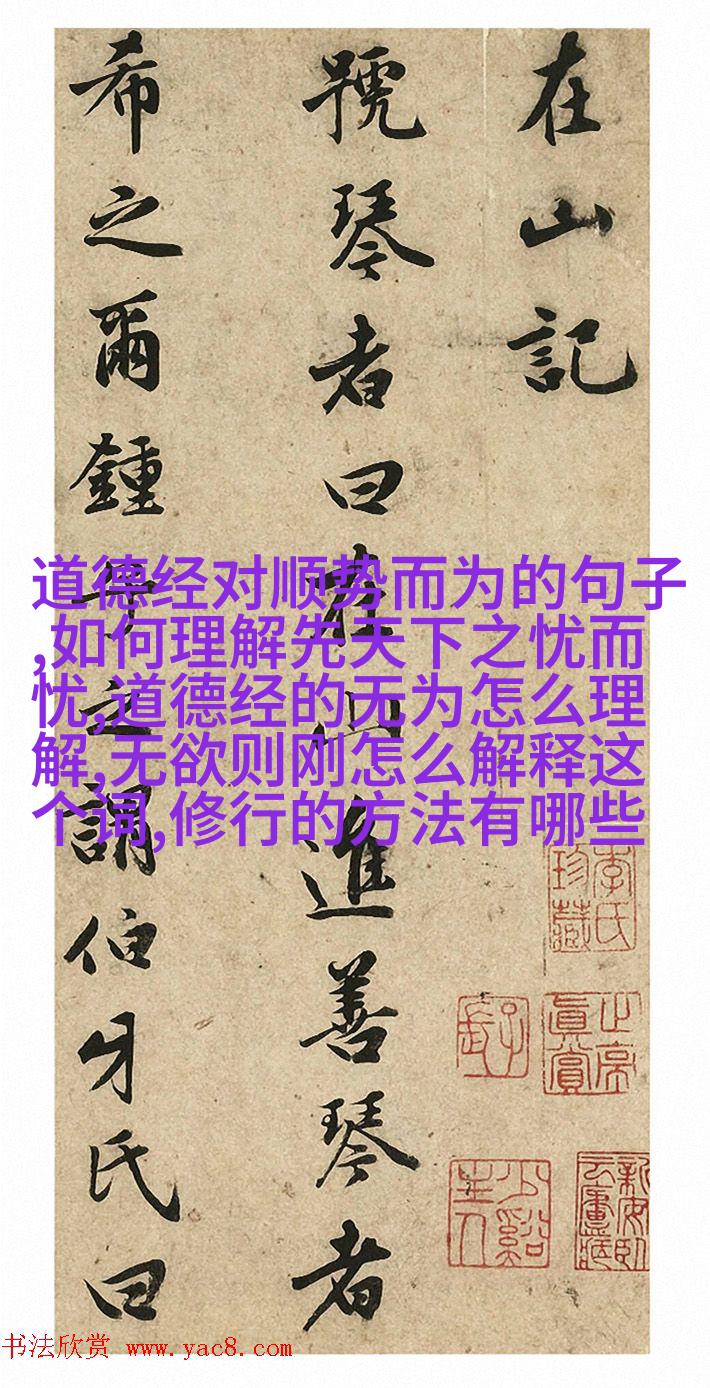 在山記
號琴者曰在山進善琴者
希之爾鍾子之謂伯牙氏曰
道德经对顺势而为的句子
,如何理解先天下之忧而
忧,道德经的无为怎么理
解,无欲则刚怎么解释这
个词,修行的方法有哪些
李氏珍藏
书法欣赏 www.yac8.com